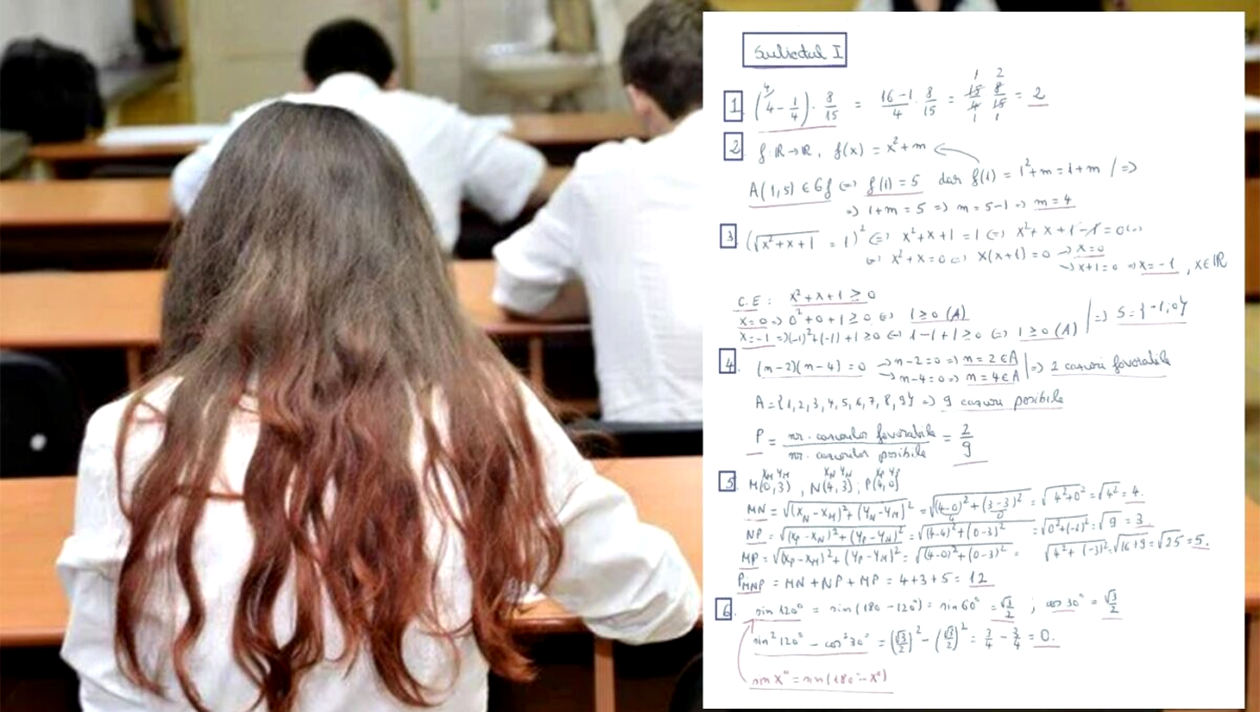 Subiectul I
1. (4 - 1/4) · 8/15 = 16-1/4 · 8/15 = 15/4 · 8/15 = 2
2. f: R→R, f(x) = x²+m
A(1,5) ∈ Gf ⇔ f(1) = 5 dar f(1) = 1²+m = 1+m | ⇒
⇒ 1+m = 5 ⇒ m = 5-1 ⇒ m = 4
3. (√x²+x+1 = 1)² ⇔ x²+x+1 = 1 ⇔ x²+x+1-1=0 ⇔
⇔ x²+x=0 ⇔ x(x+1)=0 → x=0
→ x+1=0 ⇒ x=-1, x∈R
C.E: x²+x+1 ≥ 0
x=0 ⇒ 0²+0+1 ≥ 0 ⇔ 1 ≥ 0 (A)
x=-1 ⇒ (-1)²+(-1)+1 ≥ 0 ⇔ 1-1+1 ≥ 0 ⇔ 1 ≥ 0 (A) | ⇒ S={-1,0}
4. (n-2)(n-4)=0 → n-2=0 ⇒ n=2∈A
→ n-4=0 ⇒ n=4∈A | ⇒ 2 cazuri favorabile
A={1,2,3,4,5,6,7,8,9} ⇒ 9 cazuri posibile
P = nr. cazurilor favorabile / nr. cazurilor posibile = 2/9
5. M(0,3), N(4,3); P(4,0)
MN = √(xN-xM)²+(yN-yM)² = √(4-0)²+(3-3)² = √4²+0² = √4² = 4.
NP = √(xP-xN)²+(yP-yN)² = √(4-4)²+(0-3)² = √0²+(-3)² = √9 = 3
MP = √(xP-xM)²+(yP-yM)² = √(4-0)²+(0-3)² = √4²+(-3)² = √16+9 = √25 = 5.
PMNP = MN+NP+MP = 4+3+5 = 12
6. sin 120° = sin(180-120°) = sin 60° = √3/2; cos 30° = √3/2
sin²120° - cos²30° = (√3/2)² - (√3/2)² = 3/4 - 3/4 = 0.
sin x° = sin(180°-x°)